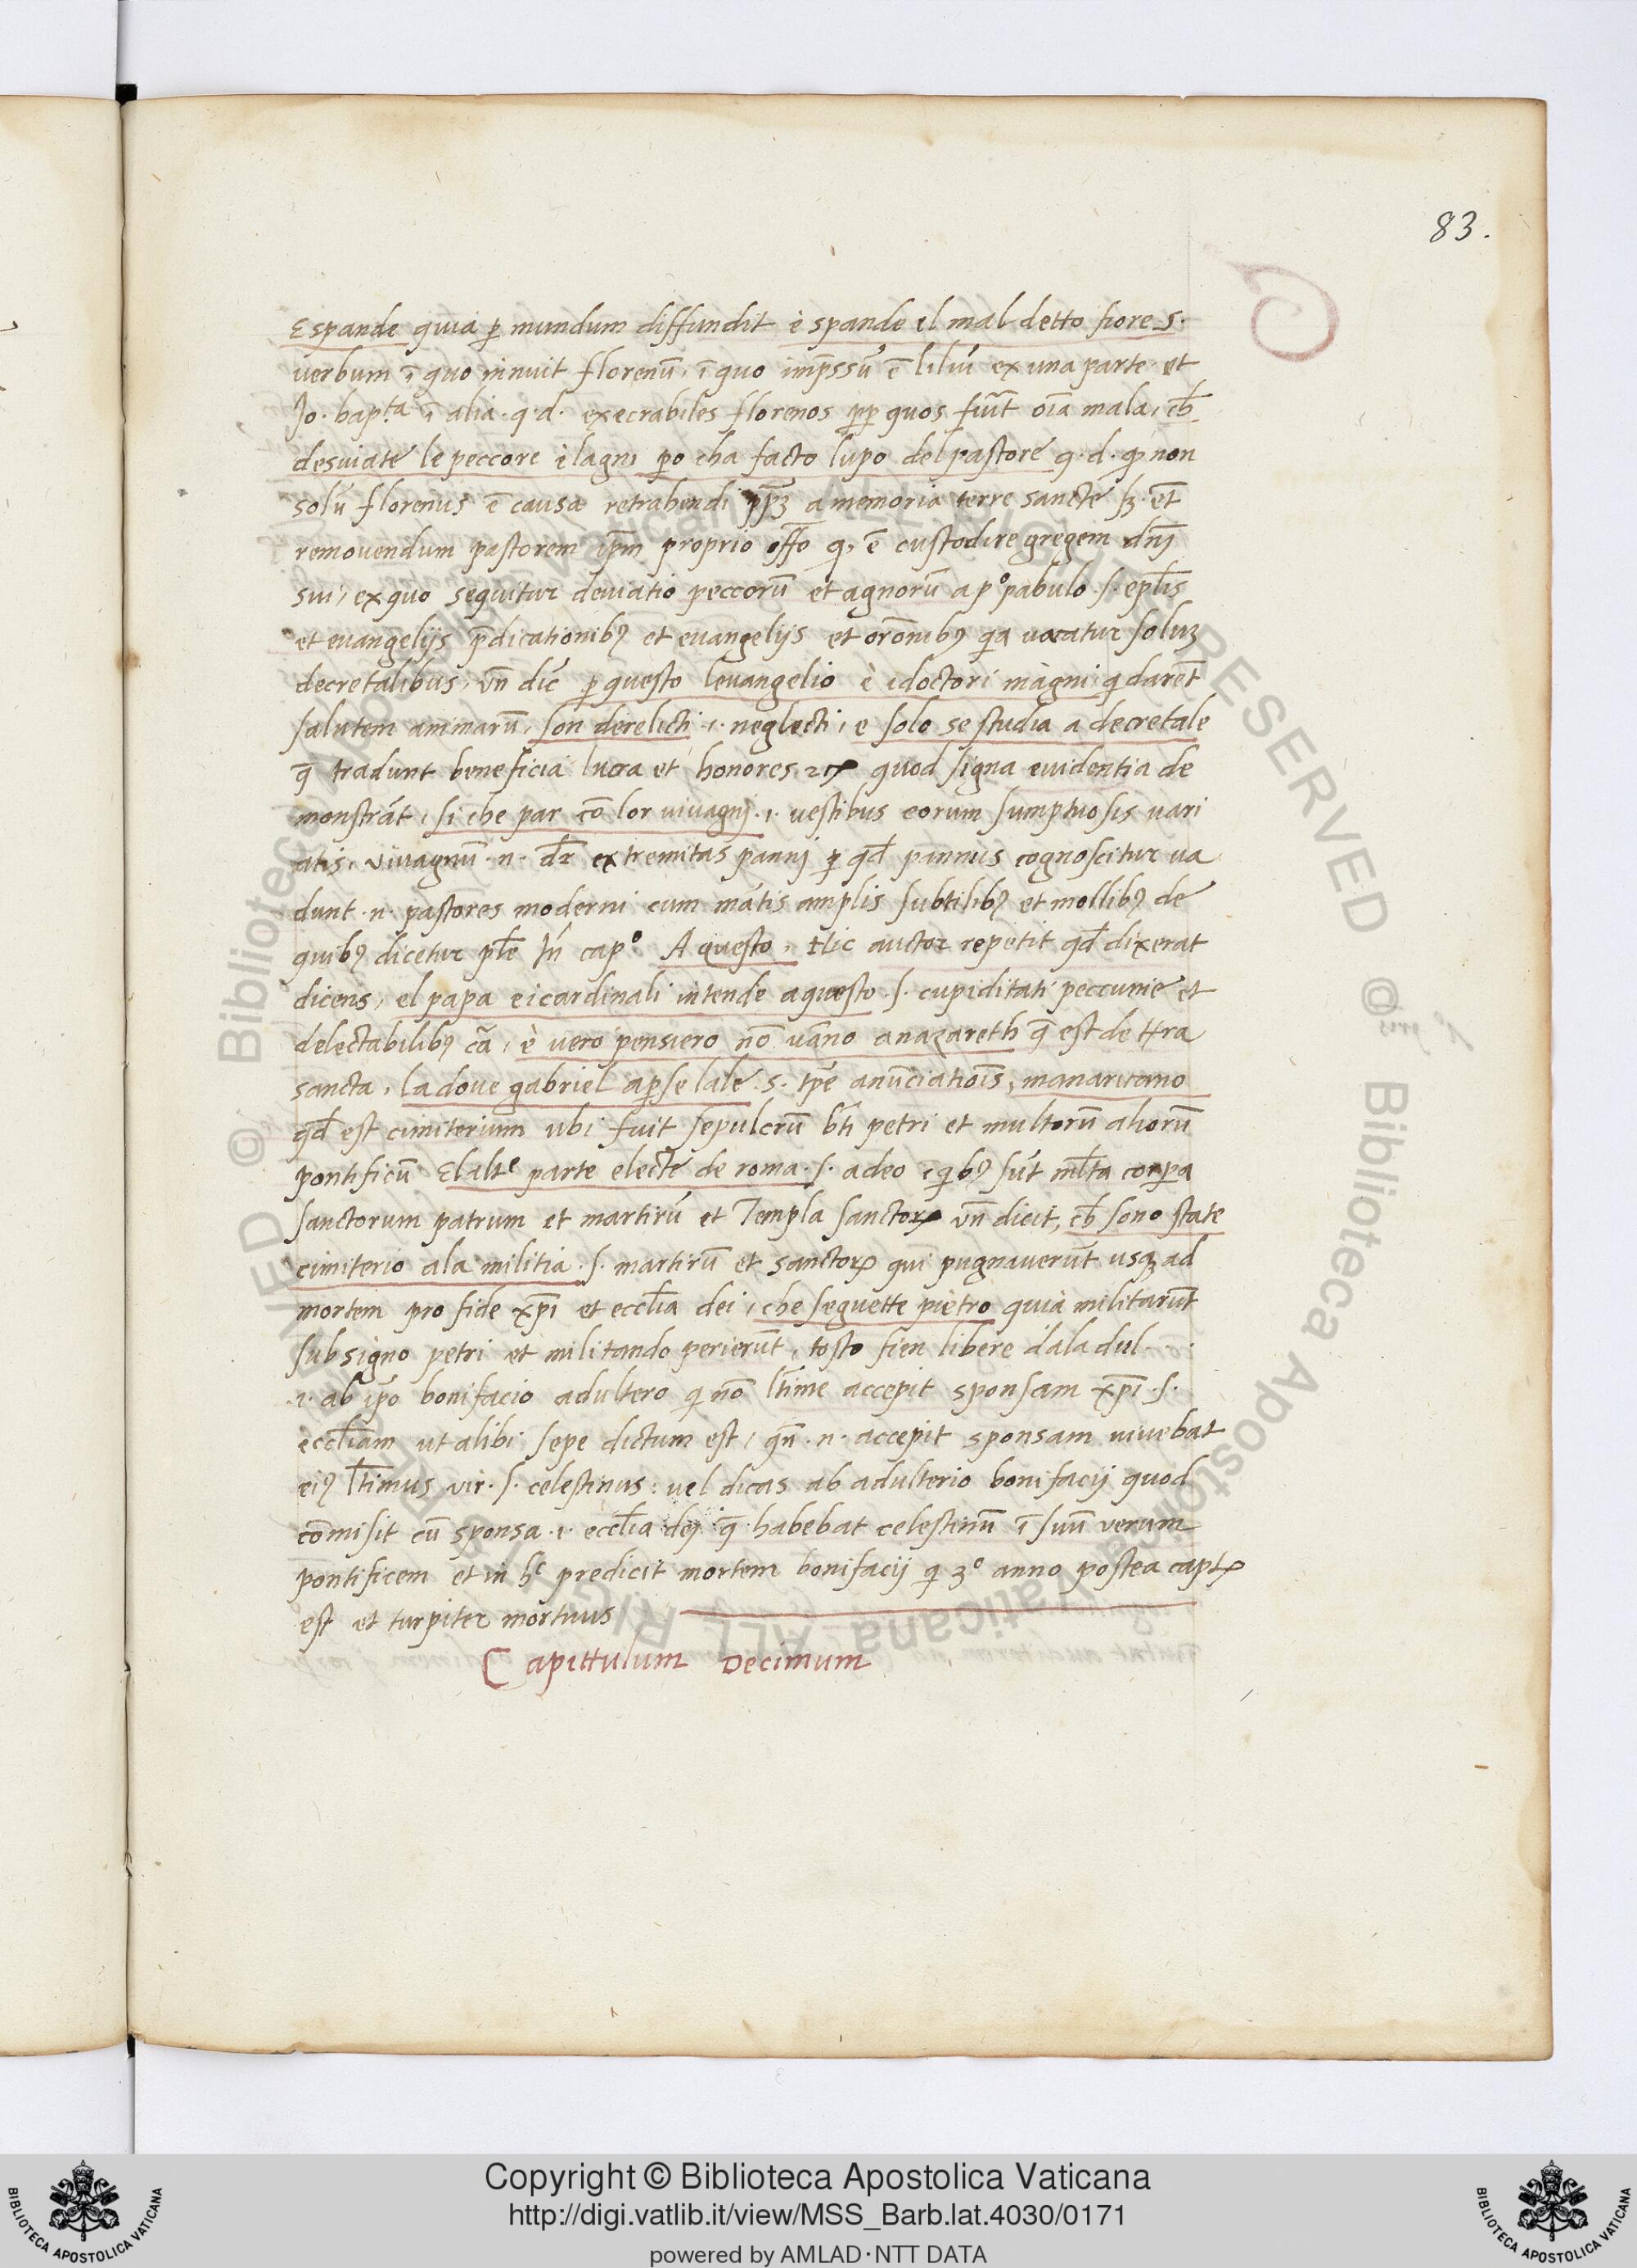 83.
Espande quia p̱ mundum diffundit è spande el mal detto fiore .s.
verbum ī quo innuit florenū, ī quo imp̄ssū ē liliū ex una parte et
Jo. bap.ta ī alia. q. d. execrabiles florenos pp̱ quos fiūt oı̄a mala, ch̄
desuiate le peccore è lagni p̱o cha facto lupo del pastore q. d. qp̄ non
solū florenus ē causa retrahendi pp̄ꝫ a memoria terre sancte sꝫ. et̄
removendum pastorem ip̄m proprio offo q, ē custodire gregem dn̄j
sui, ex quo sequitur deuiatio peccorū et agnorū a pº pabulo .s. ep̄lis
et evangelijs p̄dicationibꝰ et evangelijs et orōnibꝰ qa vacatur soluꝫ
decretalibus, vn̄ dic̄ p̱ questo levangelio è idoctori màgni qi darēt
salutem animarū, son derelicti .i. neglecti, e solo se studia a decretale
q̄ tradunt beneficia lucra et honores 2ꝝ quod signa evidentia de
monstrāt, si che par cō lor vivagnj .i. vestibus eorum sumptuosis vari
atis, vivagnū .n. dr̄ extremitas pannj p̱ qd̄ pannus cognoscitur va
dunt .n. pastores moderni cum mātis amplis subtilibꝰ et mollibꝰ de
quibꝰ dicetur pl̄e In̄ capº. A questo, Hic auctor repetit qd̄ dixerat
dicens, el papa e i cardinali intende aquesto .s. cupiditati peccunie et
delectabilibꝰ cā, è vero pensiero nō vāno anazareth q̄ est de tr̄a
sancta, ladove gabriel ap̱se lale .s. tp̄e anūciatiōis, manarivano
qd̄ est cimiterium ubi fuit sepulcrū bt̄i petri et multorū aliorū
pontificū Elalte parte electe de roma .s. adeo, i qibꝰ sūt ml̄ta corp̱a
sanctorum patrum et martirū et Templa sanctoꝝ vn̄ dicit, ch̄ sono state
cimiterio ala militia .s. martirū et sanctoꝝ qui pugnaverūt usqꝫ ad
mortem pro fide xp̄i et eccl̄ia dei, che seguette piètro quia militarūt
sub signo petri et militando perierūt, tosto fien libere d'ala dul
.i. ab ip̄o bonifacio adultero qi nō lt̄ime accepit sponsam xp̄i .s.
eccl̄iam ut alibi sepe dictum est, qn̄ .n. accepit sponsam vivebat
eiꝰ lt̄imus vir .s. celestinus: vel dicas ab adulterio bonifacij quod
cōmisit cū sponsa .i. eccl̄ia dej q̄ habebat celestinū ī suū verum
pontificem et in hc predicit mortem bonifacij qi 3º anno postea captꝰ
est et turpiter mortuus
Capittulum Decimum
Copyright © Biblioteca Apostolica Vaticana
http://digi.vatlib.it/view/MSS_Barb.lat.4030/0171
powered by AMLAD·NTT DATA